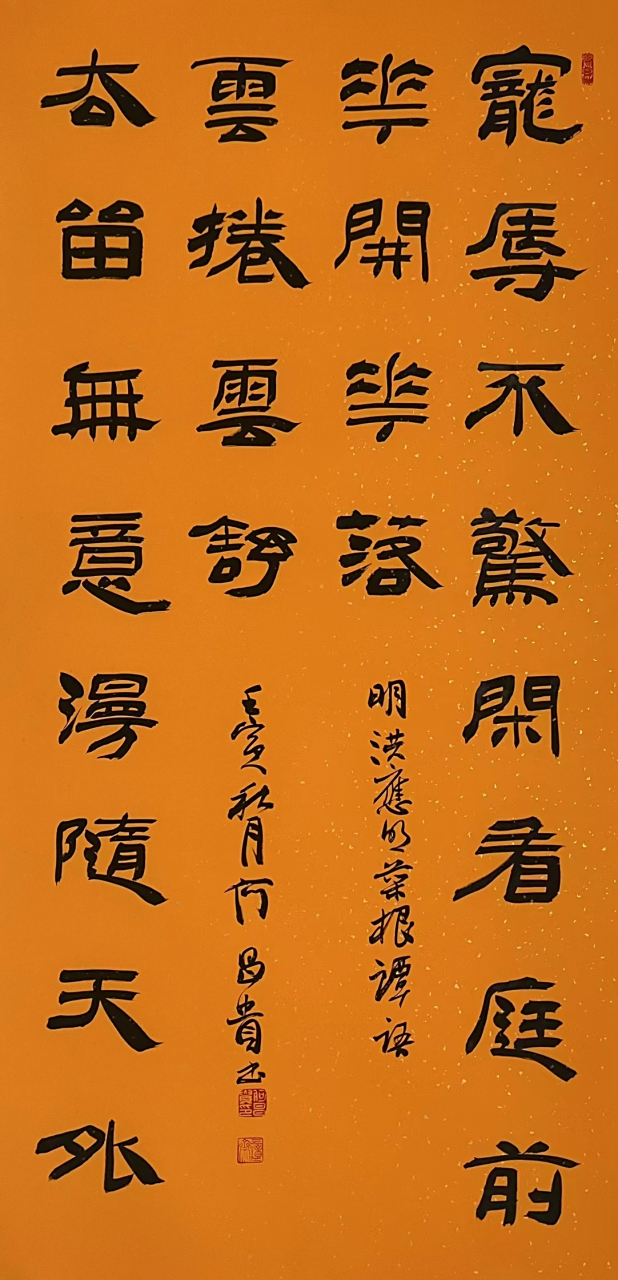 寵辱不驚閑看庭前
華開華落
去留無意漫隨天外
雲捲雲舒
明洪應明菜根譚語
壬寅秋月何昌貴书